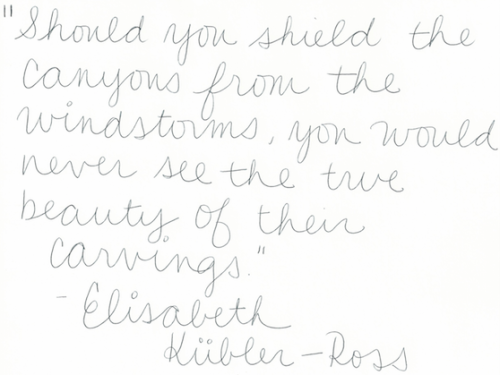 "Should you shield the
canyons from the
windstorms, you would
never see the true
beauty of their
carvings."
- Elisabeth
Kübler-Ross